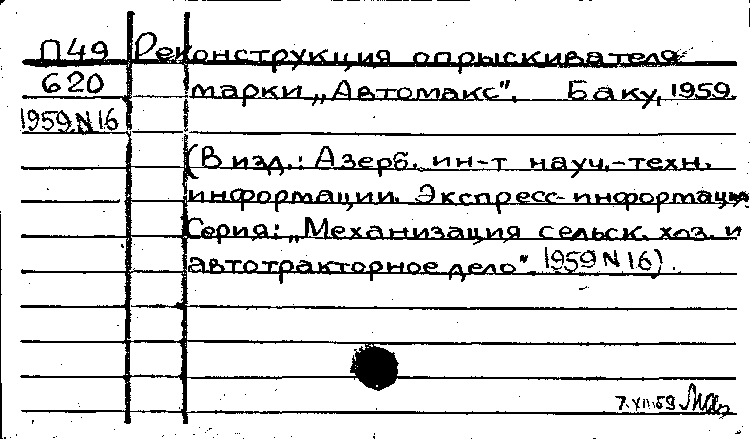 П49 Реконструкция опрыскивателя
620 марки „Автомакс". Баку, 1959.
1959 N 16
(В изд.: Азерб. ин-т науч.-техн.
информации. Экспресс-информация
Серия: „Механизация сельск. хоз. и
автотракторное дело". 1959 N 16).
7.XII.59